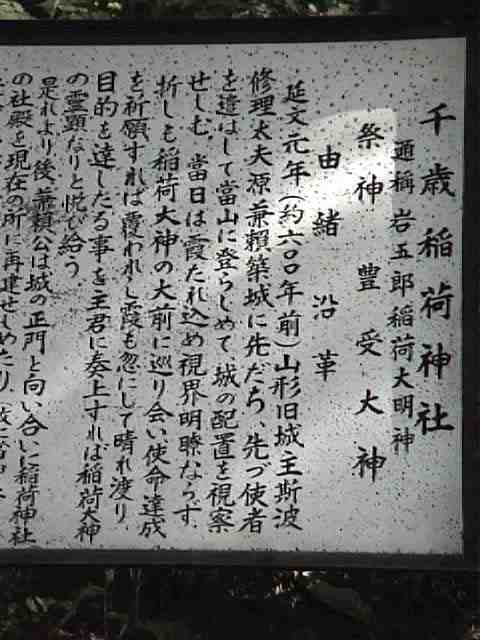 千歳稲荷神社
通称岩五郎稲荷大明神
祭神豊受大神
由緒沿革
延文元年(約六〇〇年前)山形旧城主斯波
修理太夫源兼頼築城に先だち、先づ使者
を遣はして當山に登らしめて、城の配置を視察
せしむ、當日は霞たれ込め視界明瞭ならず、
折しも稲荷大神の大前に巡り会い、使命達成
を祈願すれば覆われし霞も忽にして晴れ渡り、
目的を達したる事を主君に奏上すれば稲荷大神
の霊顕なりと悦び給う。
是れより後兼頼公は城の正門と向い合いに稲荷神社
の社殿を現在の所に再建せしめたり